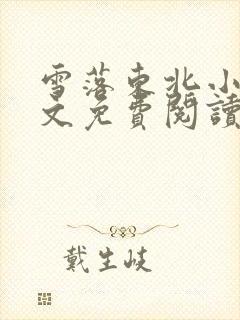 雪落東北小
文免費閱讀
戴生岐